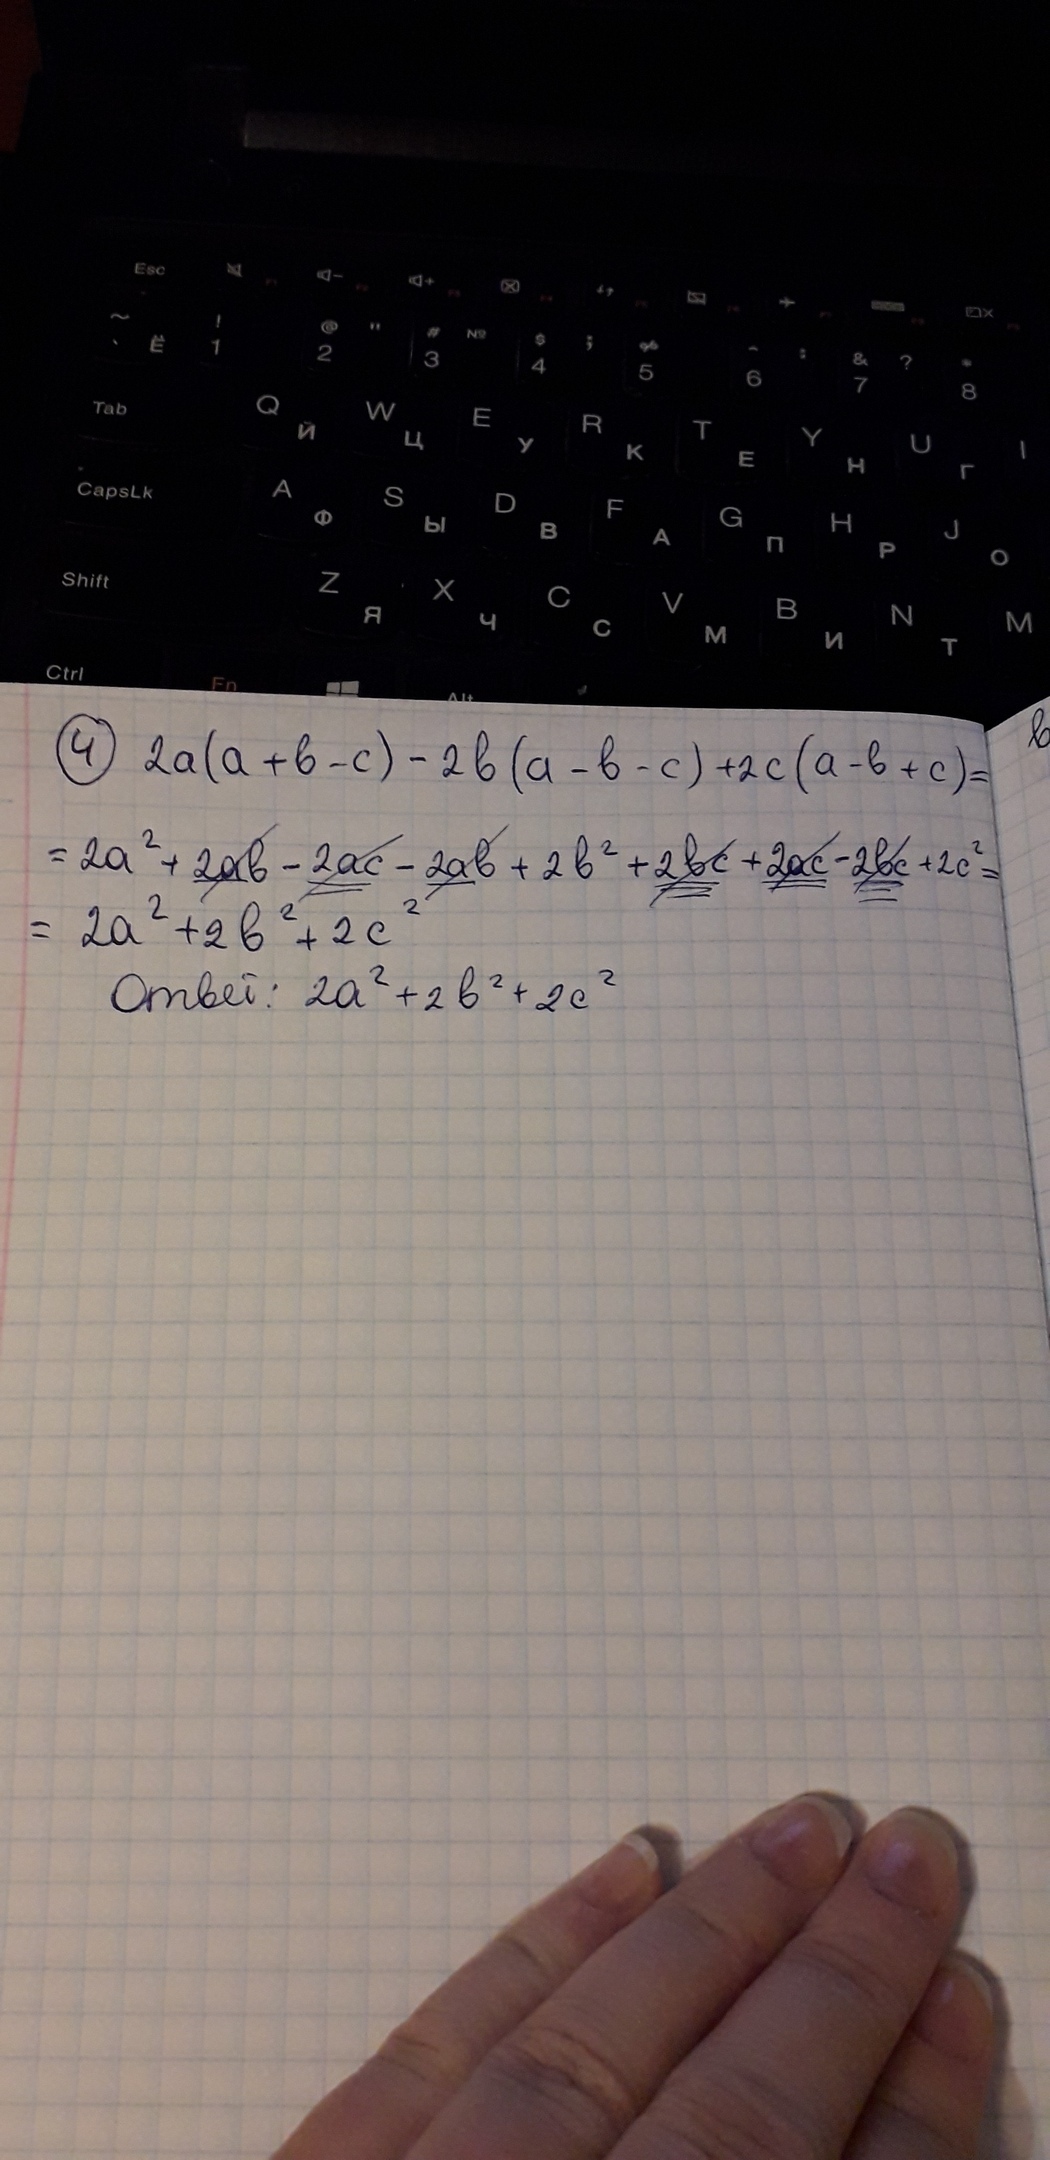 Esc
~ ! @ " # № $ ; % ^ : & ? *
` Ё 1 2 3 4 5 6 7 8
Tab Q Й W Ц E У R К T Е Y Н U Г I
CapsLk A Ф S Ы D В F А G П H Р J О
Shift Z Я X Ч C С V М B И N Т M
Ctrl Fn Alt
④ 2a(a+b-c)-2b(a-b-c)+2c(a-b+c)=
=2a²+2ab-2ac-2ab+2b²+2bc+2ac-2bc+2c²=
= 2a²+2b²+2c²
Ответ: 2a²+2b²+2c²